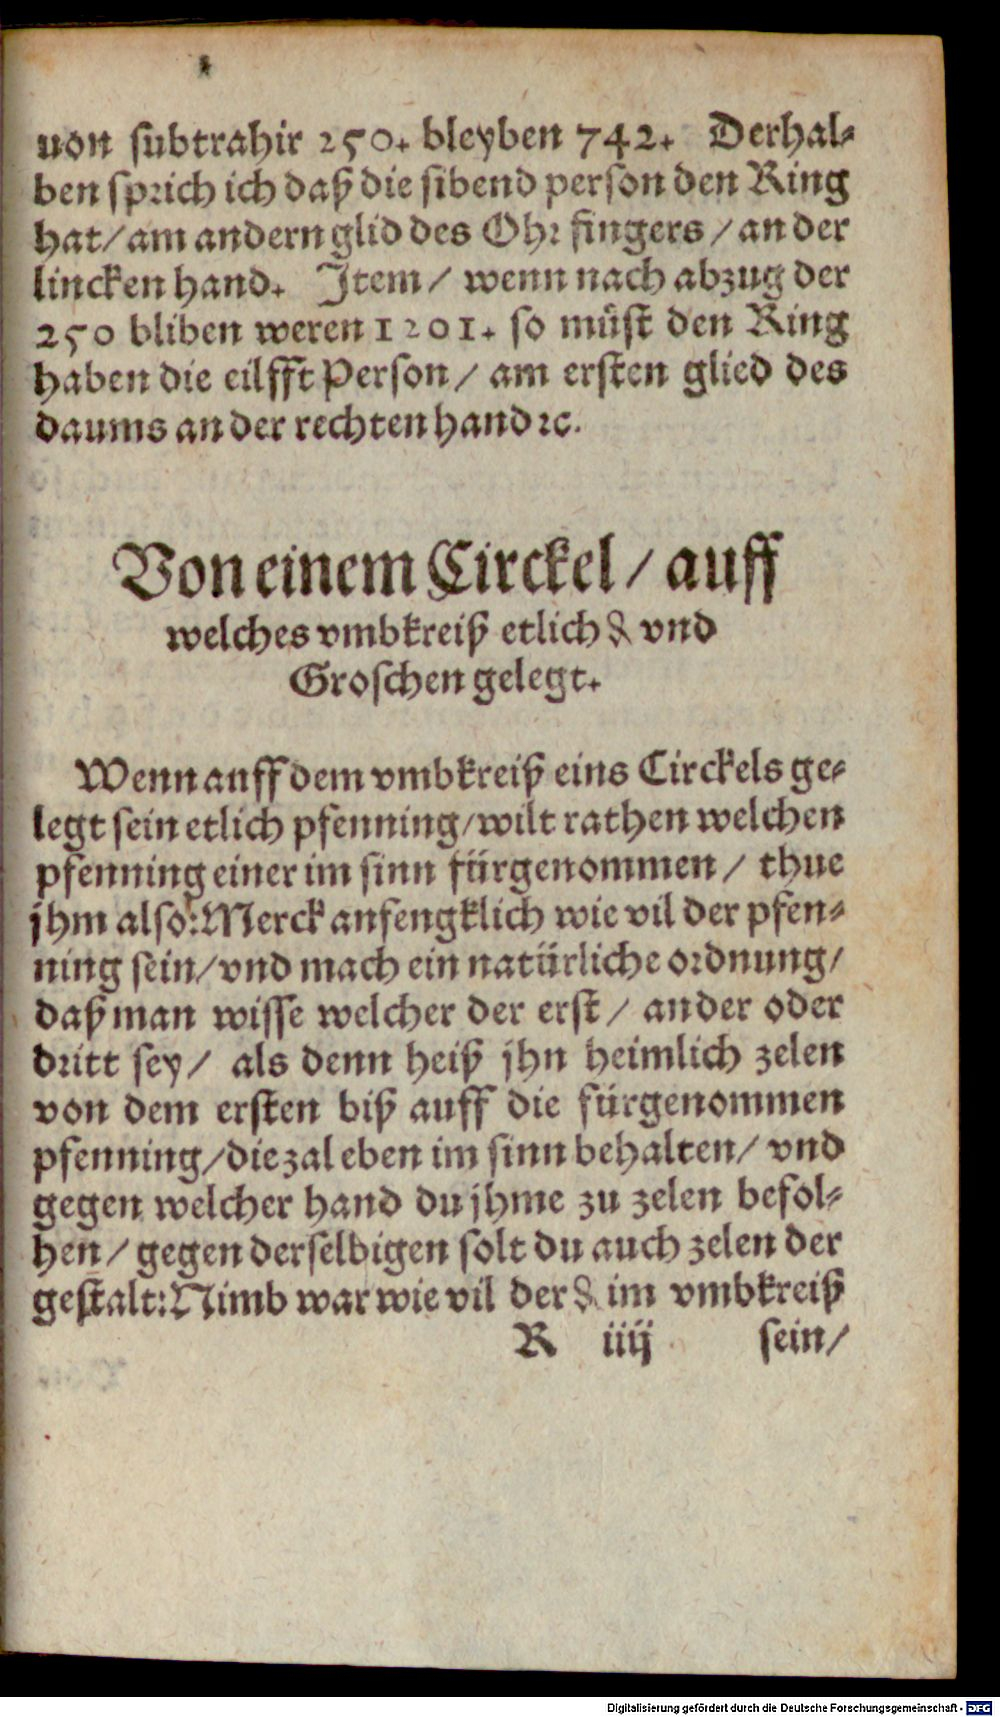 uon subtrahir 250. bleyben 742. Derhal-
ben sprich ich daß die sibend person den Ring
hat/ am andern glid des Ohr fingers/ an der
lincken hand. Item/ wenn nach abzug der
250 bliben weren 1201. so müst den Ring
haben die eilfft Person/ am ersten glied des
daums an der rechten hand ꝛc.
Von einem Circkel/ auff
welches vmbkreiß etlich ₰ vnd
Groschen gelegt.
Wenn auff dem vmbkreiß eins Circkels ge-
legt sein etlich pfenning/ wilt rathen welchen
pfenning einer im sinn fürgenommen/ thue
jhm also: Merck anfengklich wie vil der pfen-
ning sein/ vnd mach ein natürliche ordnung/
daß man wisse welcher der erst/ ander oder
dritt sey/ als denn heiß jhn heimlich zelen
von dem ersten biß auff die fürgenommen
pfenning/ die zal eben im sinn behalten/ vnd
gegen welcher hand du jhme zu zelen befol-
hen/ gegen derselbigen solt du auch zelen der
gestalt: Nimb war wie vil der ₰ im vmbkreiß
R iiij sein/
Digitalisierung gefördert durch die Deutsche Forschungsgemeinschaft - DFG